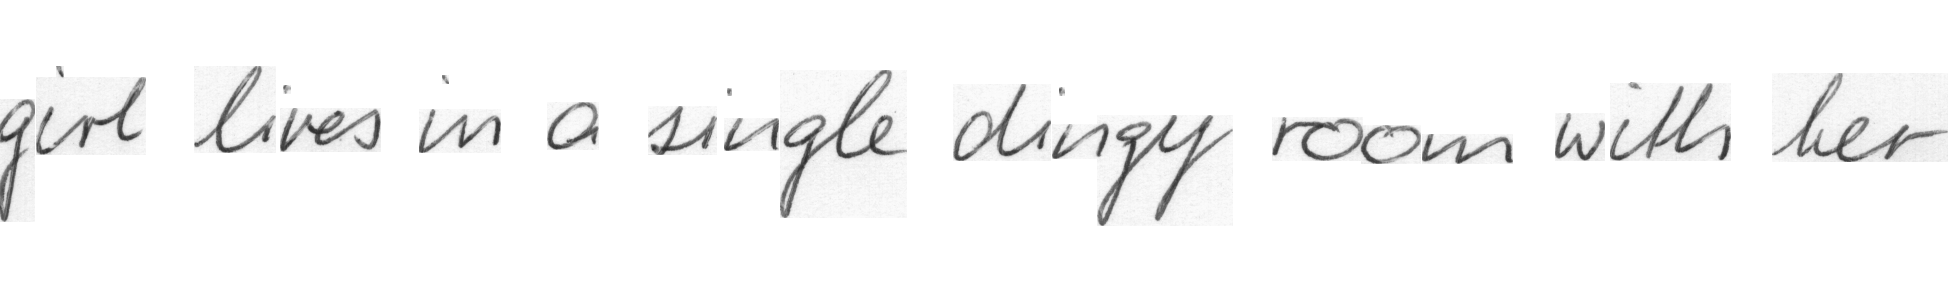 girl lives in a single dingy room with her